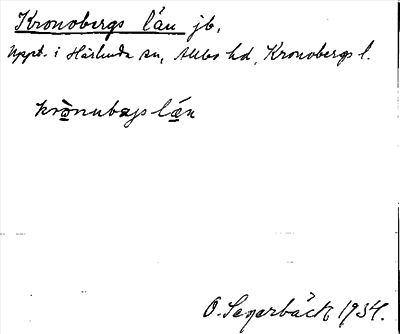 Kronobergs län jb.
Uppt. i Härlunda sn, Allbo hd, Kronobergs l.
krònubæjs lǽn
O. Segerbäck 1934.